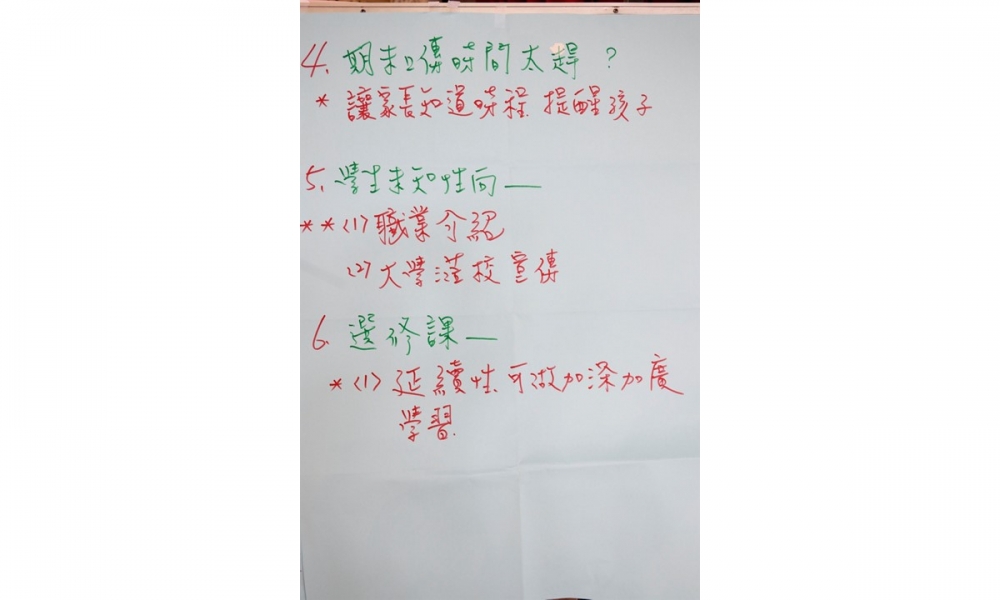 4. 期末上傳時間太趕？
* 讓家長知道時程、提醒孩子
5. 學生未知性向—
**(1) 職業介紹
(2) 大學蒞校宣傳
6. 選修課—
*(1) 延續性、可做加深加廣
學習.